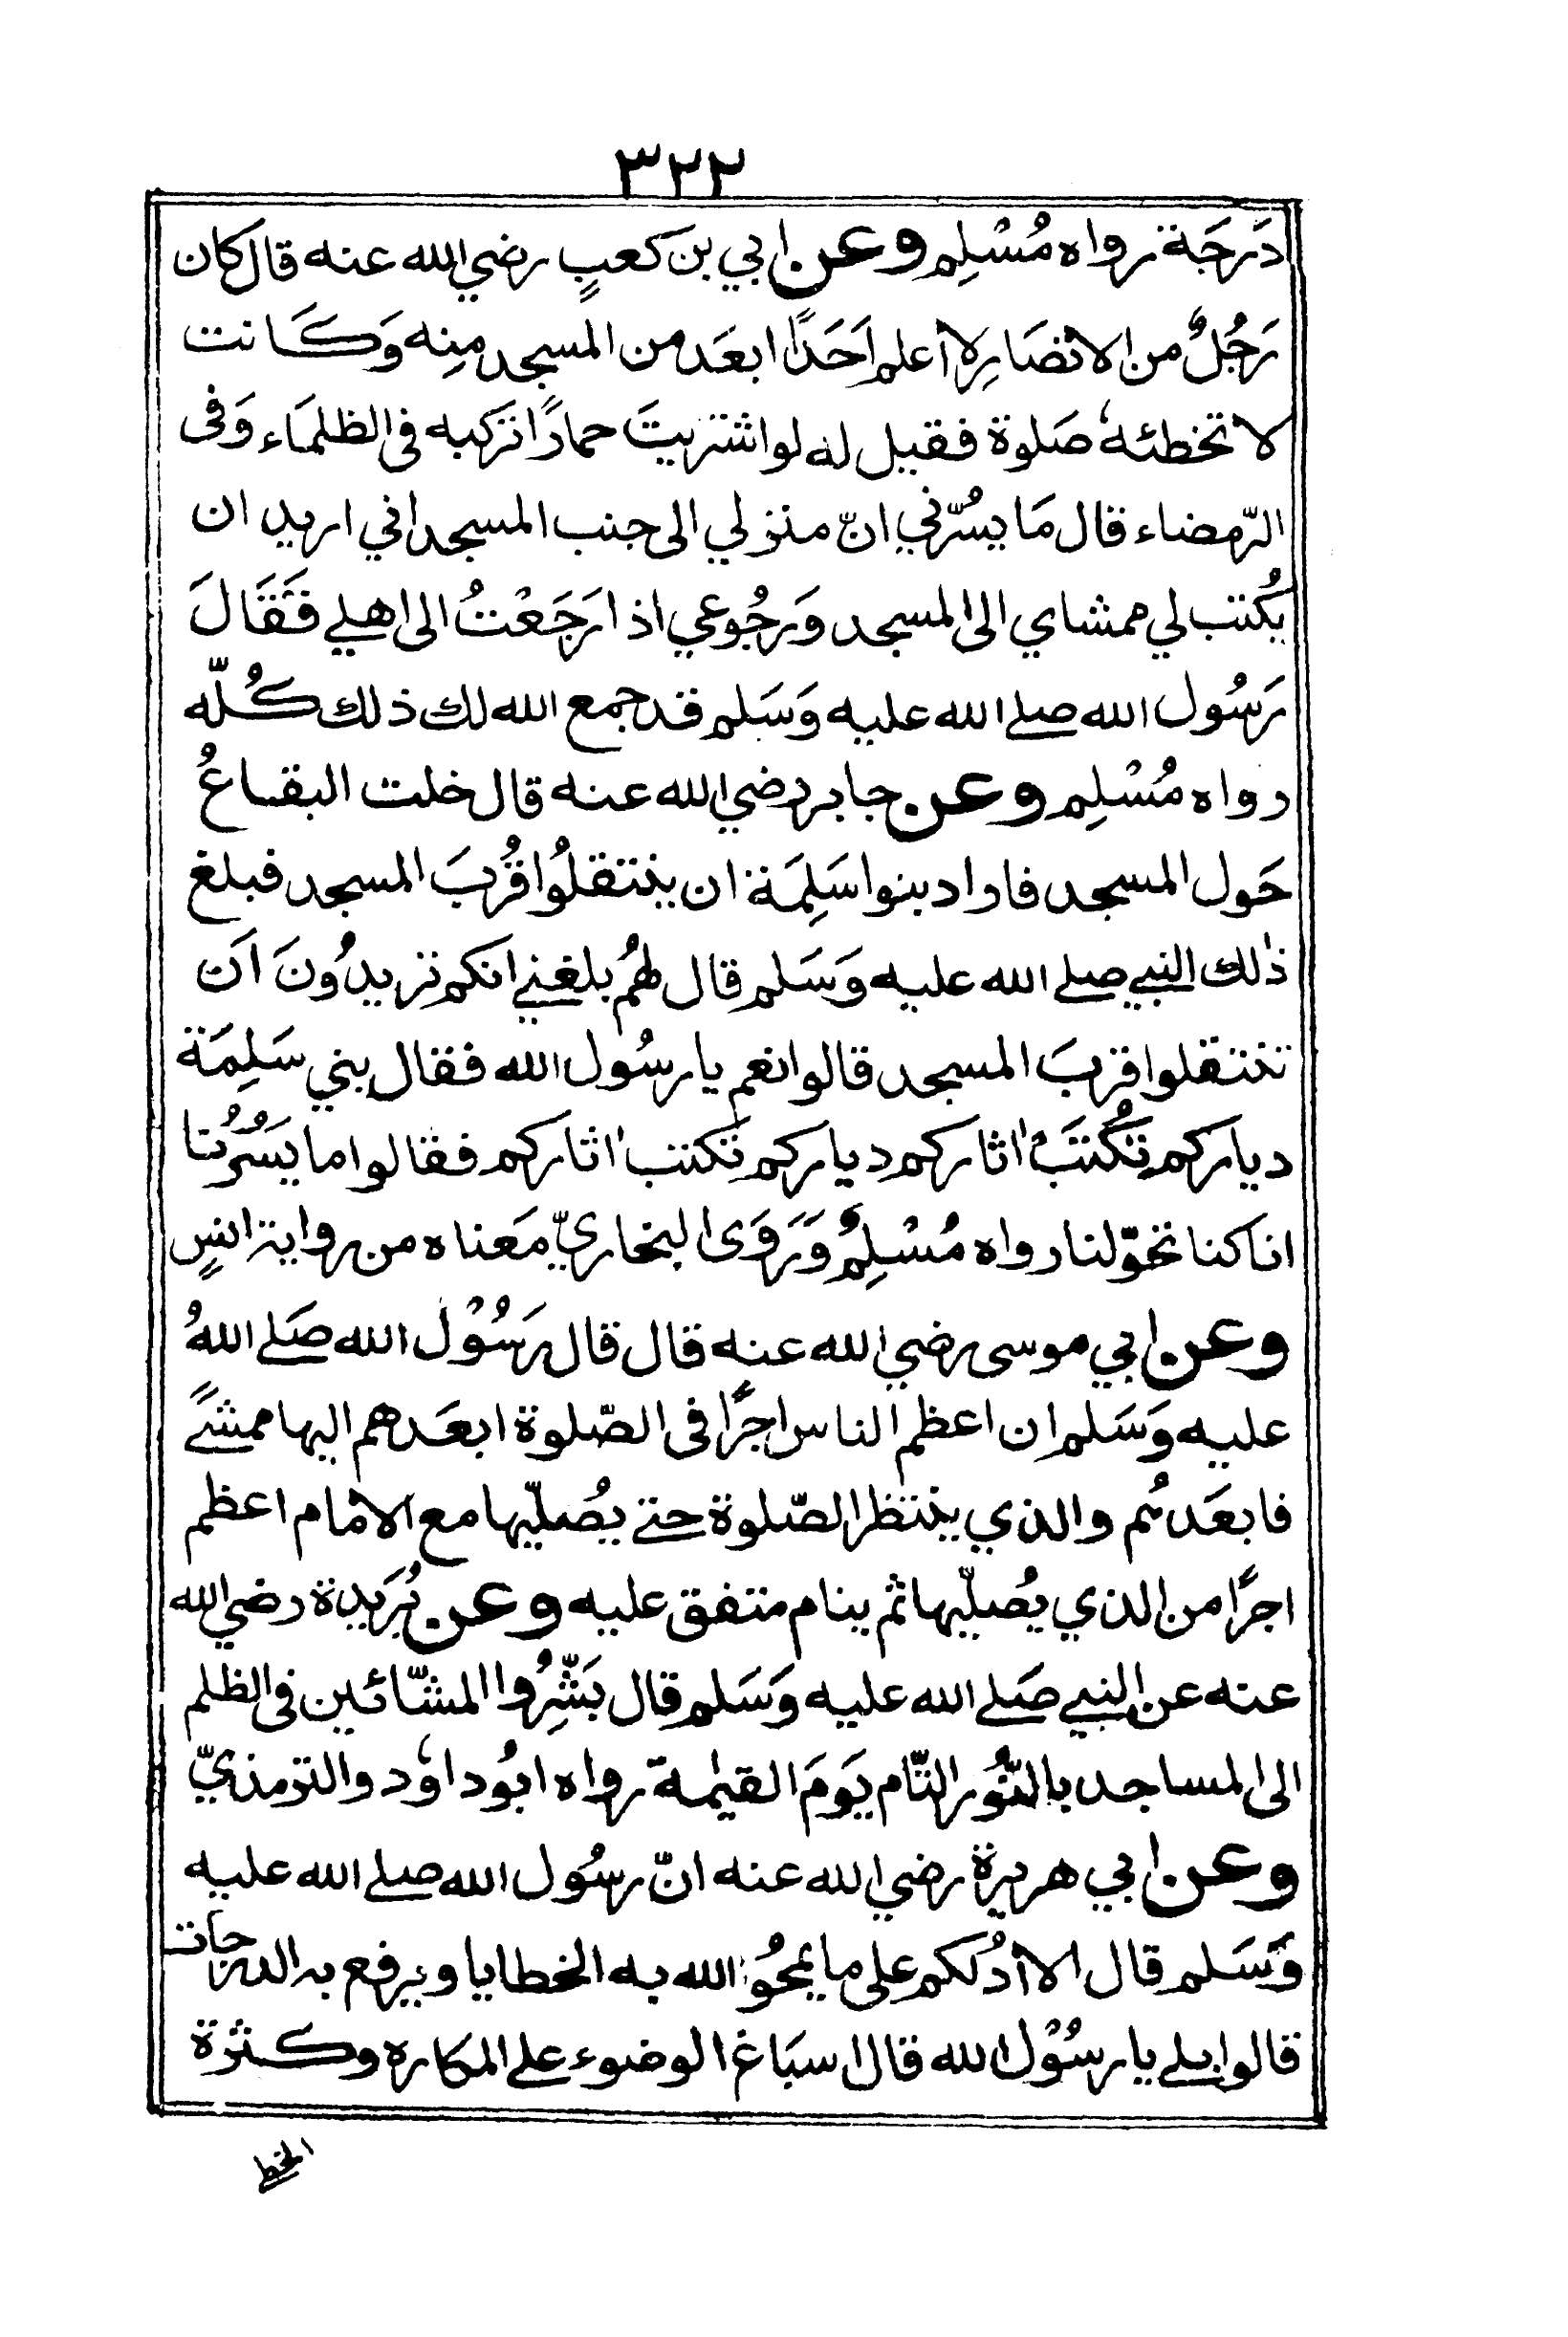 ٣٢٢
دَرجَة رواه مُسْلِم وعن ابي بن كعبٍ رضي الله عنه قال كان
رَجُلٌ من الانصَارِ لا اعلم اَحَدًا ابعَد من المسجد مِنه وَكَانت
لا تخطئهٗ صَلوة فقيل له لو اشتريتَ حمارًا تركبه فى الظلمَاء وَفى
الرّمضاء قال مَا يسُرّني انّ منزلي الى جنب المسجد اني اريد ان
يُكتب لي ممشاي الى المسجد وَرجُوعي اذا رَجَعْتُ الى اهلي فَقَالَ
رَسُول الله صلے الله عليه وَسَلم قد جمع الله لك ذلك كُلّه
رواه مُسْلِم وعن جابر رضي الله عنه قال خلت البقاعُ
حَول المسجد فاراد بنوا سَلِمَة ان ينتقلُوا قُربَ المسجد فبلغ
ذٰلك النبي صلے الله عليه وَسَلم قال لهُم بلغني انكم تريدُونَ اَن
تنتقلوا قربَ المسجد قالوا نعم يا رسُول الله فقال بني سَلِمَة
دياركم تُكْتَبْ اٰثاركم دياركم تكتب اٰثاركم فقالوا ما يَسُرُّنا
انا كنا تحوّلنا رواه مُسْلِمٌ وَرَوَى البخاريّ مَعناه من رواية انسٍ
وعن ابي موسى رضي الله عنه قال قال رَسُوْل الله صَلے اللهُ
عليه وَسَلم ان اعظم الناس اجرًا فى الصّلوة ابعَدهم اليها ممشًے
فابعَدهُم والذي ينتظر الصّلوة حتے يصُلّيها مع الامام اعظم
اجرًا من الذي يُصلّيها ثم ينام متفق عليه وعن بُرَيدة رضي الله
عنه عن النبي صَلے الله عليه وَسَلم قال بَشِّرُوا المشّائين فى الظلم
الى المساجد بالنُّور التّام يَومَ القيٰمة رواه ابُو داوٗد والترمذيّ
وعن ابي هريرة رضي الله عنه انّ رسُول الله صلے الله عليه
وَسَلم قال الا ادُلكم على ما يمحُو الله به الخطايا ويرفع به الدرجات
قالوا بلے يا رسُوْل الله قال اسبَاغ الوضوء علے المكاره وكثرة
الخط